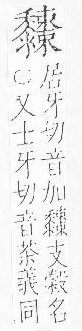 居牙切音加支穀名
〇又士牙切音茶義同